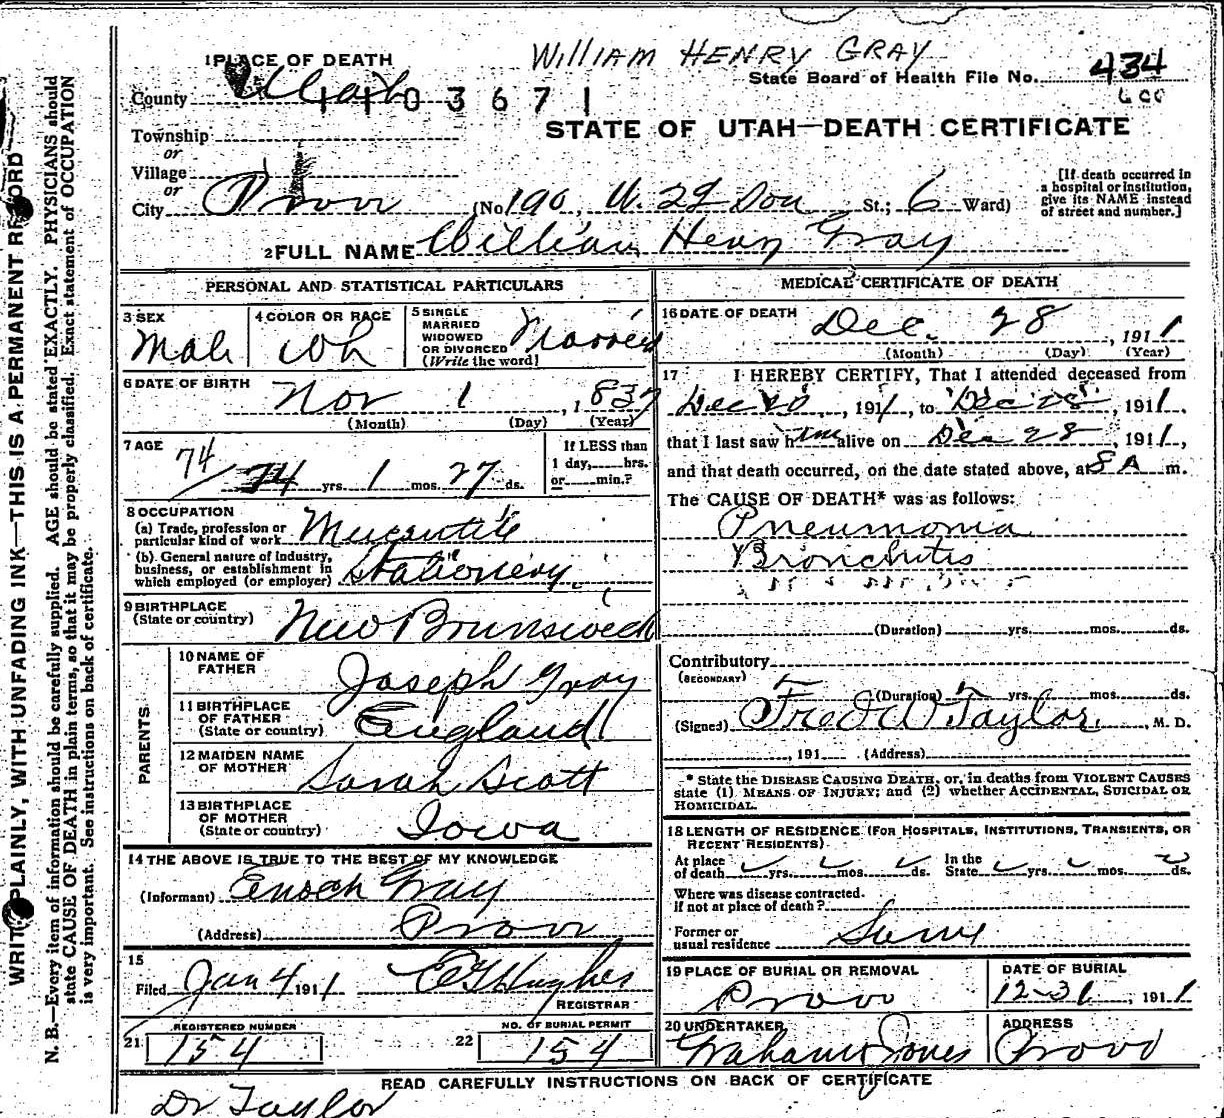 William Henry Gray
1 PLACE OF DEATH
State Board of Health File No. 434
600
County Utah
1103671
STATE OF UTAH—DEATH CERTIFICATE
Township
or
Village
or
City Provo (No. 190, W. 2d Sou St.; 6 Ward)
[If death occurred in a hospital or institution, give its NAME instead of street and number.]
2 FULL NAME William Henry Gray
PERSONAL AND STATISTICAL PARTICULARS
3 SEX
Male
4 COLOR OR RACE
Wh
5 SINGLE MARRIED WIDOWED OR DIVORCED (Write the word)
Married
6 DATE OF BIRTH
Nov 1, 1837
(Month) (Day) (Year)
7 AGE
74
74 yrs. 1 mos. 27 ds.
If LESS than 1 day, hrs. or min.?
8 OCCUPATION
(a) Trade, profession or particular kind of work Mercantile
(b) General nature of industry, business, or establishment in which employed (or employer) Stationery
9 BIRTHPLACE (State or country) New Brunswick
PARENTS
10 NAME OF FATHER Joseph Gray
11 BIRTHPLACE OF FATHER (State or country) England
12 MAIDEN NAME OF MOTHER Sarah Scott
13 BIRTHPLACE OF MOTHER (State or country) Iowa
14 THE ABOVE IS TRUE TO THE BEST OF MY KNOWLEDGE
(Informant) Enoch Gray
(Address) Provo
15
Filed Jan 4 1911 E G Hughes
REGISTRAR
21 REGISTERED NUMBER 154
22 NO. OF BURIAL PERMIT 154
MEDICAL CERTIFICATE OF DEATH
16 DATE OF DEATH
Dec. 28, 1911
(Month) (Day) (Year)
17 I HEREBY CERTIFY, That I attended deceased from
Dec, 1911, to Dec 28, 1911.
that I last saw him alive on Dec 28, 1911,
and that death occurred, on the date stated above, at 8 A m.
The CAUSE OF DEATH* was as follows:
Pneumonia
Bronchitis
(Duration) yrs. mos. ds.
Contributory
(SECONDARY)
(Duration) yrs. mos. ds.
(Signed) Fred W Taylor, M. D.
, 191 (Address)
* State the DISEASE CAUSING DEATH, or, in deaths from VIOLENT CAUSES state (1) MEANS OF INJURY; and (2) whether ACCIDENTAL, SUICIDAL OR HOMICIDAL.
18 LENGTH OF RESIDENCE (FOR HOSPITALS, INSTITUTIONS, TRANSIENTS, OR RECENT RESIDENTS).
At place of death yrs. mos. ds. In the State yrs. mos. ds.
Where was disease contracted. If not at place of death?
Former or usual residence Same
19 PLACE OF BURIAL OR REMOVAL
Provo
DATE OF BURIAL
12-31, 1911
20 UNDERTAKER
Graham & Jones
ADDRESS
Provo
READ CAREFULLY INSTRUCTIONS ON BACK OF CERTIFICATE
Dr Taylor
WRITE PLAINLY, WITH UNFADING INK—THIS IS A PERMANENT RECORD
N. B.—Every item of information should be carefully supplied. AGE should be stated EXACTLY. PHYSICIANS should
state CAUSE OF DEATH in plain terms, so that it may be properly classified. Exact statement of OCCUPATION
is very important. See instructions on back of certificate.